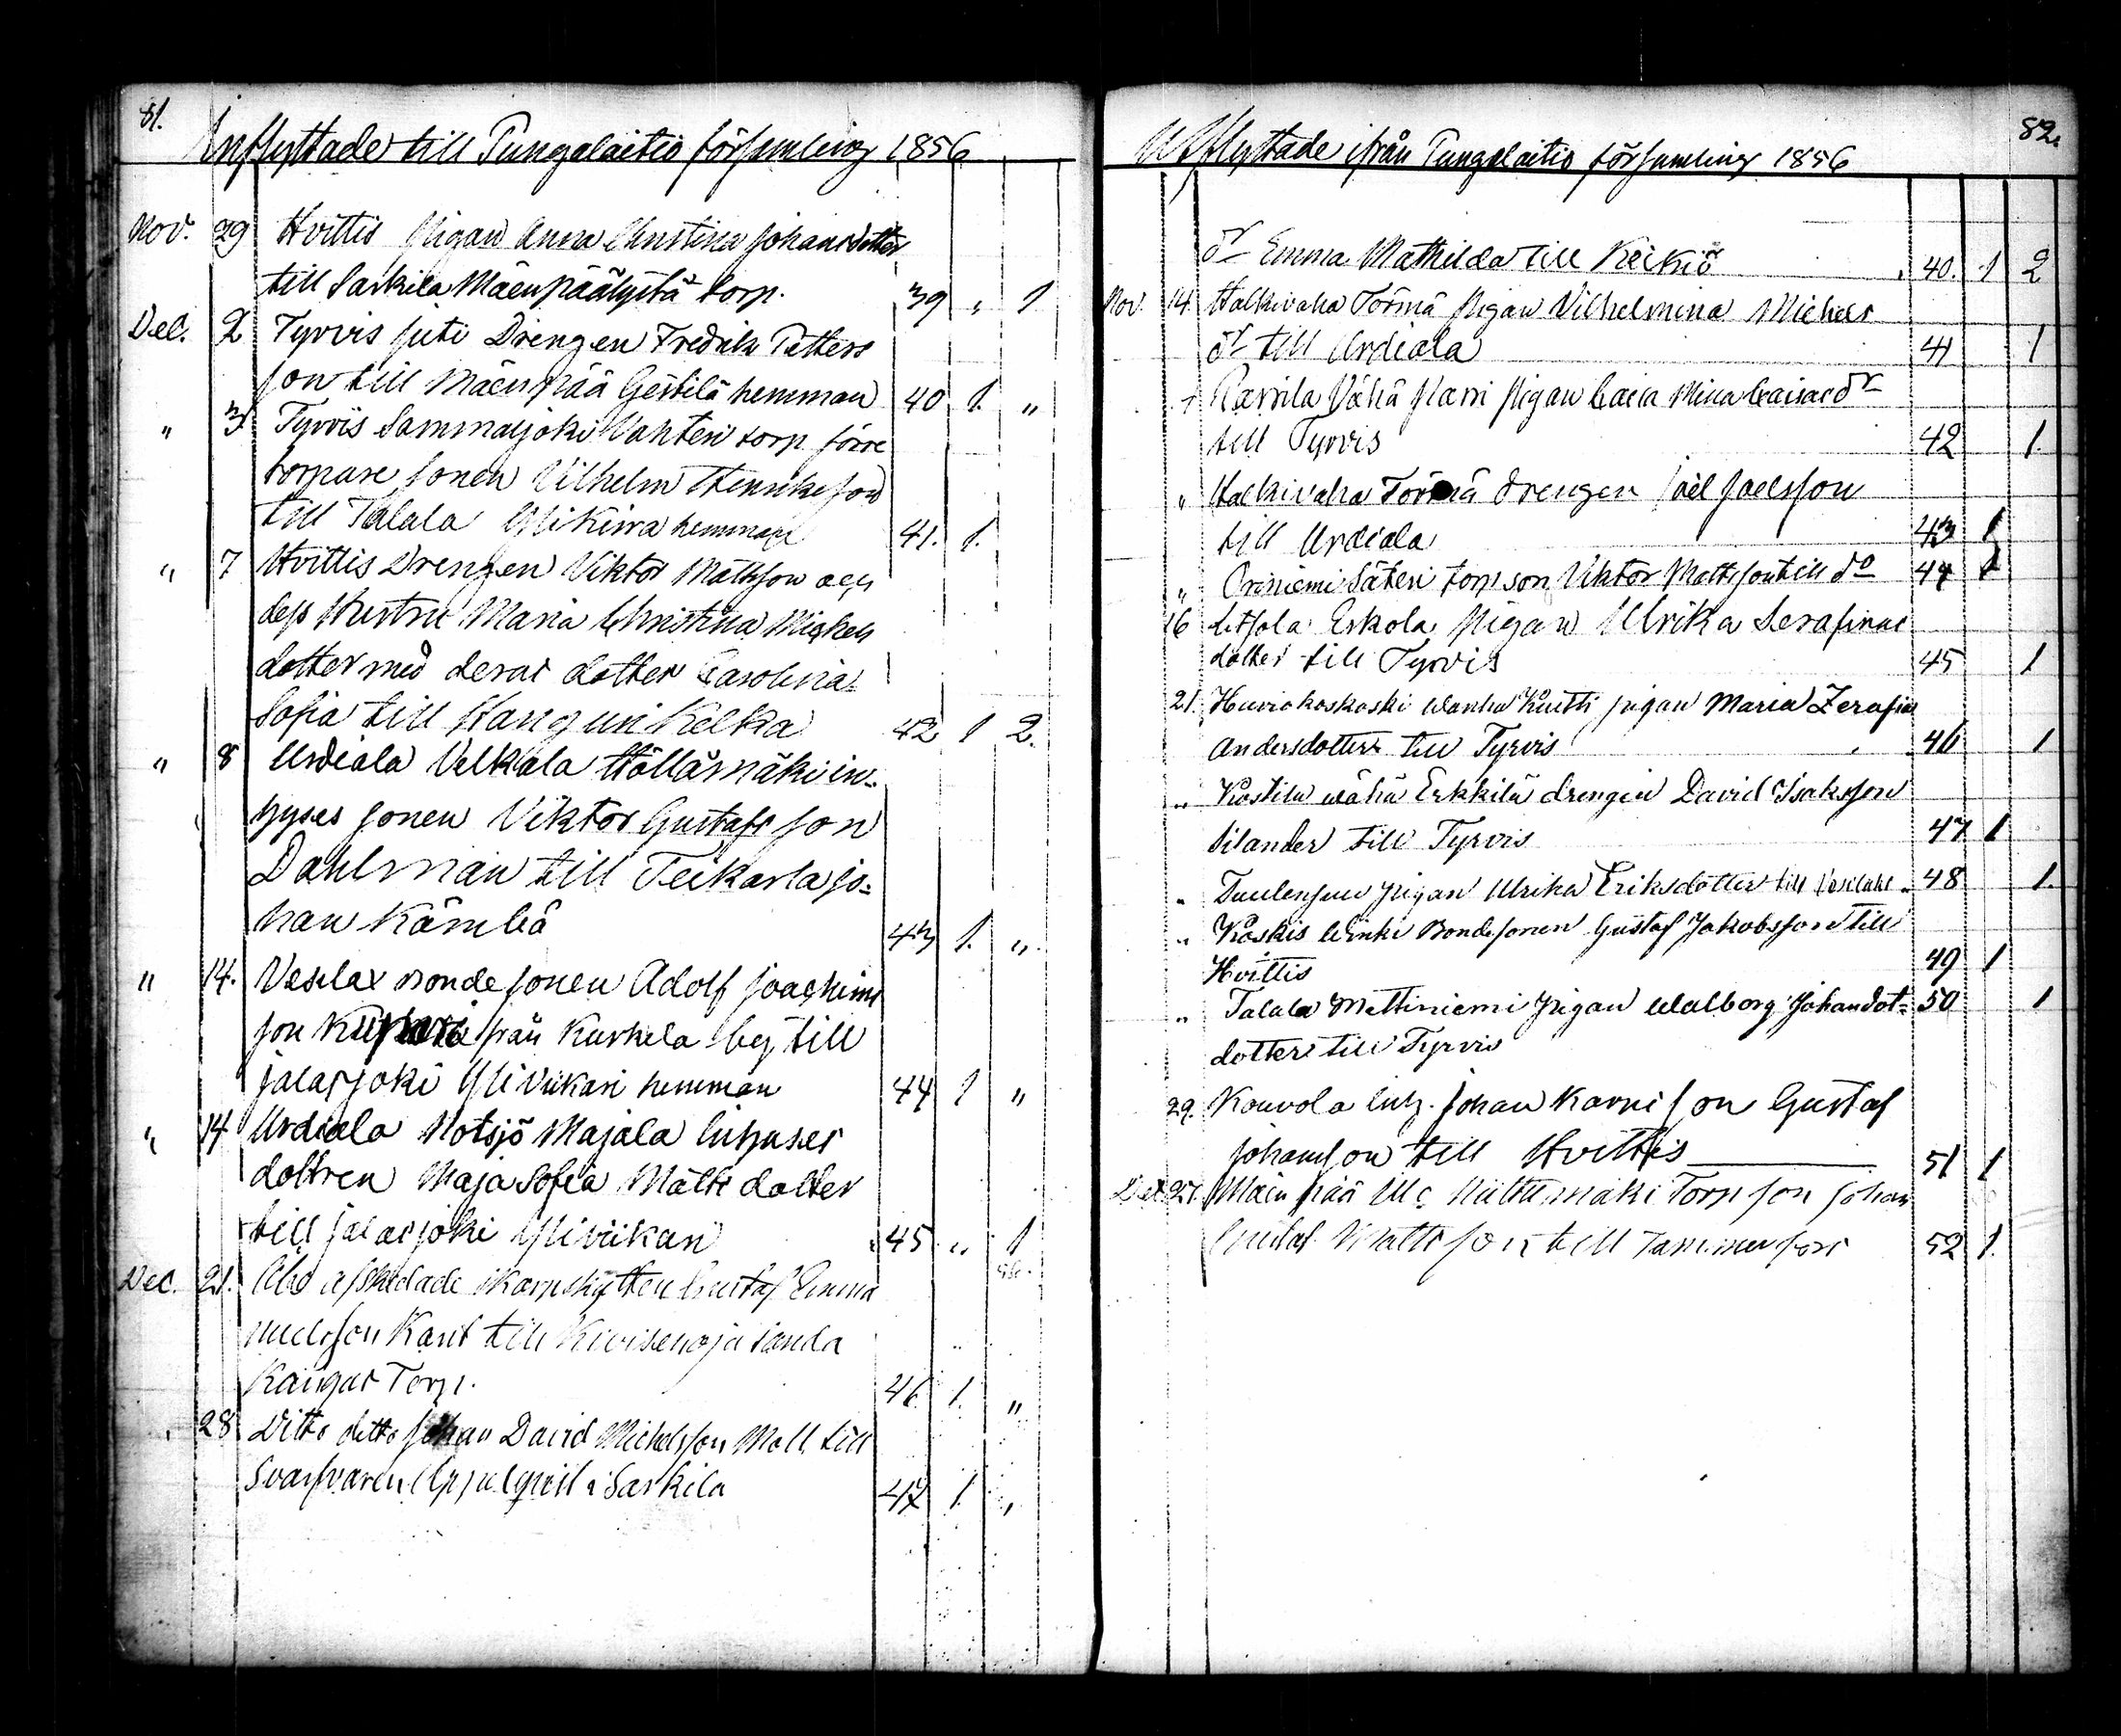 81.
Inflyttade till Pungalaitio församling 1856
Nov. 29 Hvittis Pigan Anna Christina Johansdotter
till Sarkila Mäenpäälystä torp. 39 „ 1
Dec. 2 Tyrvis Drengen Fredrik Petters
son till Mäenpää Gestilä hemman 40 1. „
„ 3 Tyrvis Sammaljoki Vahteri torp förre
torpare sonen Vilhelm Henriksson
till Talala hemman 41. 1.
„ 7 Hvittis Drengen Viktor Mattsson och
dess Hustru Maria Christina Michels
dotter med deras dotter Carolina
Sofia till Kelkka 42 1 2.
„ 8 Urdiala Velkala Höllämäki in-
hyses sonen Viktor Gustafsson
Dahlman till Teikarla Jo-
han 43 1. „
„ 14. Vesilax Bondesonen Adolf Joachims
son från Kurkela by till
Jalasjoki Yliviikari hemman 44 1 „
„ 14 Urdiala Notsjö Majala Inhyses
dottren Maja Sofia Matts dotter
till Jalasjoki Yliviikari 45 „ 1
Dec. 21. Åbo afskedade skarpskytten Gustaf Emma
nuelsson till Kivisenoja
Kangas Torp. 46 1. „
28 Ditto ditto Johan David Michelsson Moll till
Svarfvaren i Sarkila 47 1. „
82.
Utflyttade ifrån Pungalaitio församling 1856
dr Emma Mathilda till Keikiö 40. 1 2
Nov. 14. Halkivaha Törmä Pigan Vilhelmina Michels
dr till Urdiala 41 1
Vähä Pigan Mina dr
till Tyrvis 42 1.
„ Halkivaha Törmä drengen Joel Joelsson
till Urdiala 43 1
„ Oriniemi Säteri torp son Viktor Mattsson till do 44 1
16 Eskola Pigan Ulrika Serafina
dotter till Tyrvis 45 1
21. Pigan Maria Zerafia
Andersdotter till Tyrvis 46 1
„ Kostila wähä Erkkilä drengen David Isaksson
Silander till Tyrvis 47 1
„ Pigan Ulrika Eriksdotter till Vesilaks 48 1.
„ Koskis Bondesonen Gustaf Jakobsson till
Hvittis 49 1
„ Talala Mattiniemi Pigan Walborg Johandot- 50 1
dotter till Tyrvis
29. Kouvola Inh. Johan son Gustaf
Johansson till Hvittis 51 1
Dec. 27. Mäenpää Torp son Johan
Gustaf Mattsson till Tammerfors 52 1.